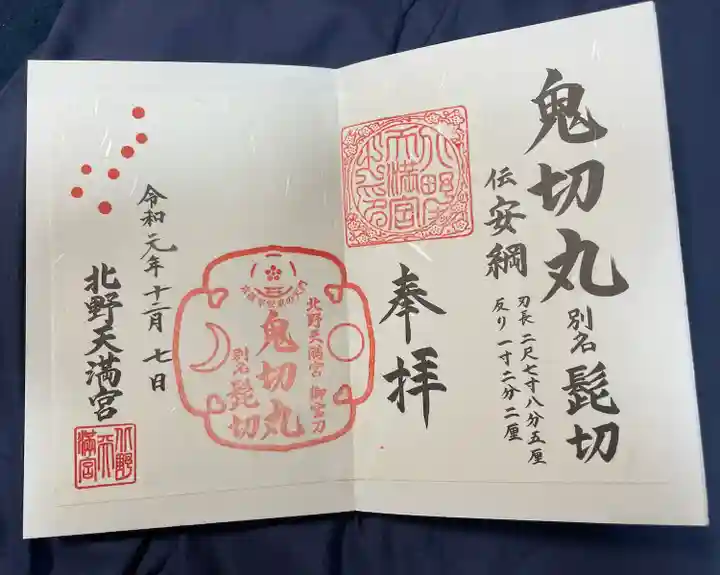 鬼切丸 別名 髭切
伝 安綱
刃長 二尺七寸八分五厘
反り 一寸二分二厘
奉拝
北野天満宮 御宝刀
鬼切丸
別名 髭切
令和元年十二月七日
北野天満宮
北野
天
満宮